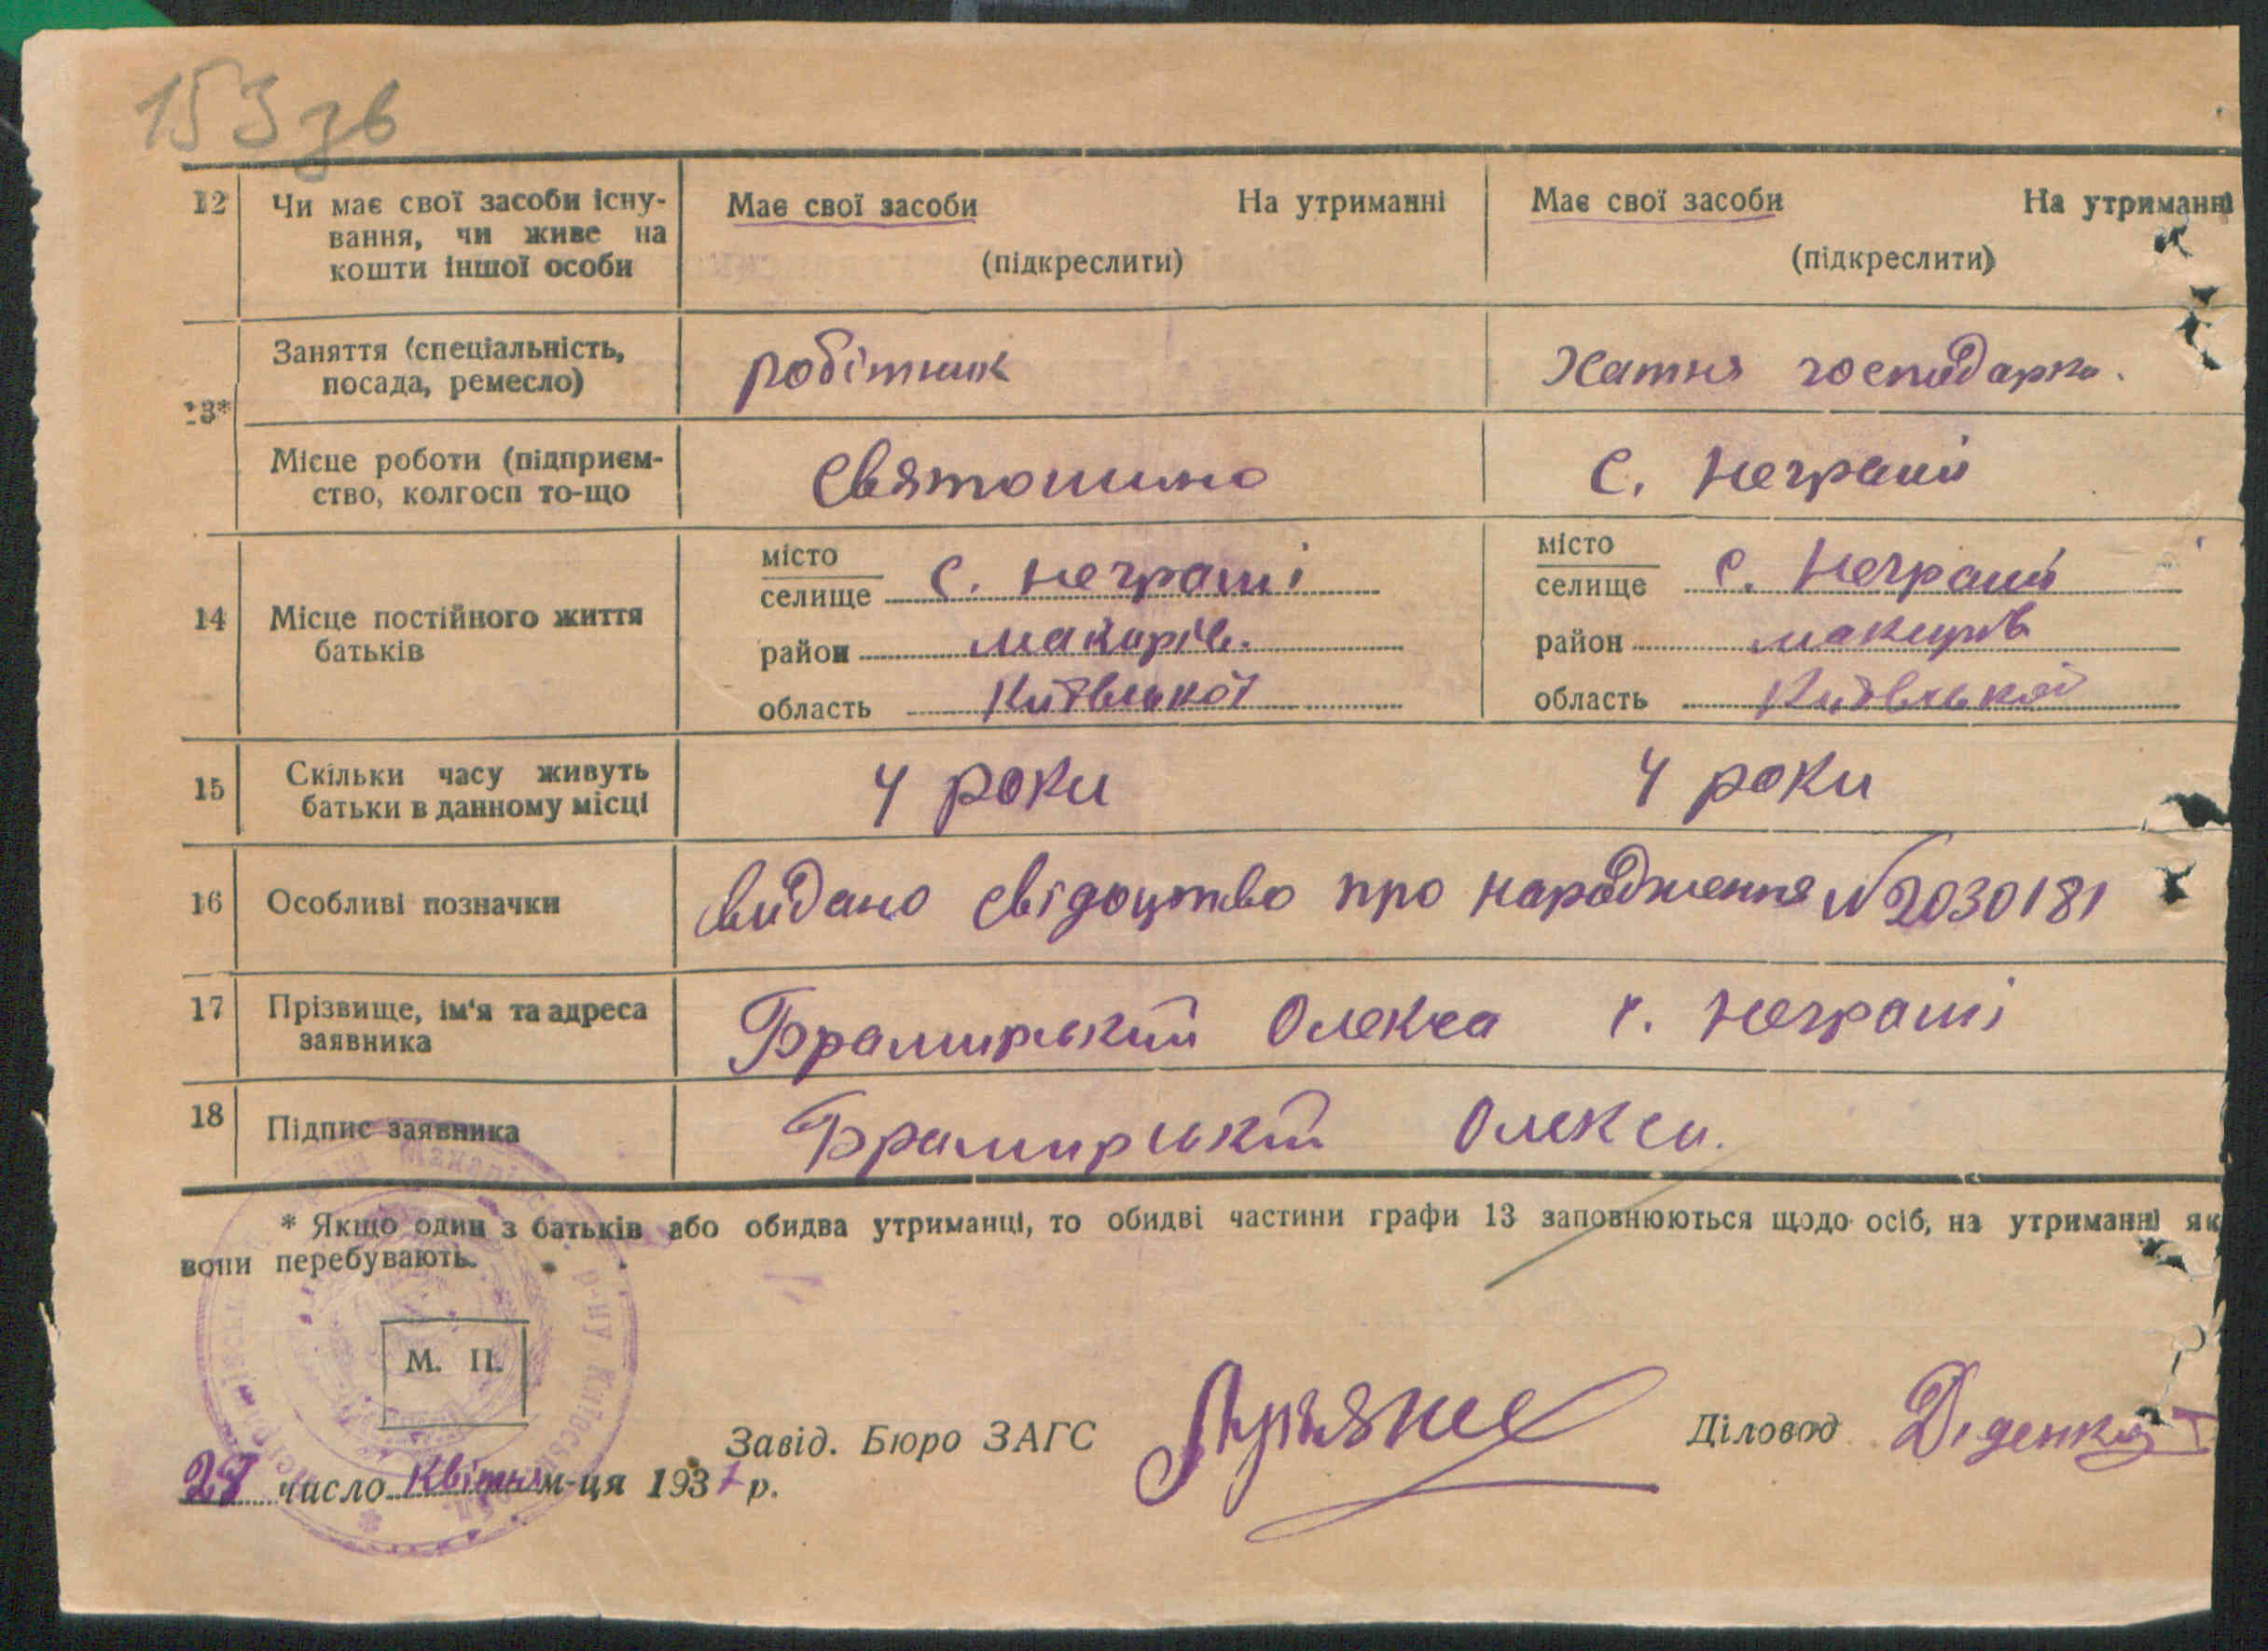 153 зв
12 Чи має свої засоби існу- Має свої засоби На утриманні Має свої засоби На утриманні
вання, чи живе на
кошти іншої особи (підкреслити) (підкреслити)
13* Заняття (спеціальність, робітник Хатня господарка.
посада, ремесло)
Місце роботи (підприєм- Святошино С. Неграші
ство, колгосп то-що
14 Місце постійного життя батьків
місто
селище С. Неграші
район Макарів.
область Київської
місто
селище С. Неграші
район Макарів
область Київської
15 Скільки часу живуть 4 роки 4 роки
батьки в данному місці
16 Особливі позначки видано свідоцтво про народження №2030181
17 Прізвище, ім'я та адреса Олекса с. Неграші
заявника
18 Підпис заявника Олекса.
* Якщо один з батьків або обидва утриманці, то обидві частини графи 13 заповнюються щодо осіб, на утриманні як
вони перебувають.
М. П.
Завід. Бюро ЗАГС Діловод Діденко
число квітня м-ця 1937 р.